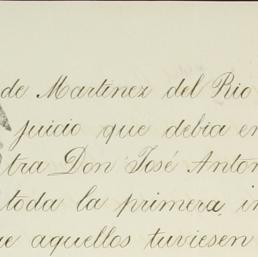 de Martinez del Rio
juicio que debia en
tra Don José Anton
toda la primera, in
ue aquellos tuviesen